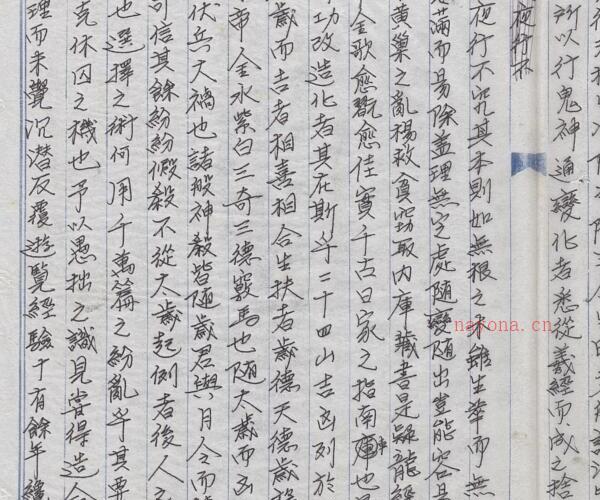 所以行鬼神通變化者悉從羲經而成之捨
夜行不究其本則如無根之木雖生華而無
滿而易除蓋理無定處隨變隨出豈能容其
黃巢之亂楊救貧竊取內庫藏書是疑龍經
金歌愈翫愈佳實千古日家之指南庫也
功改造化者其在斯乎二十四山吉凶列於
歲而吉者相喜相合生扶者歲德天德歲
帝金水紫白三奇三德竅馬也隨太歲而凶
伏兵大禍也諸般神殺皆隨歲君與月令而
信其餘紛紛假殺不從太歲起例者後人
也選擇之術何用千萬篇之紛亂乎其要
克休囚之機也予以愚拙之識見嘗得造
理而未覺沉潛反覆遊覽經驗十有餘年
nayona.cn